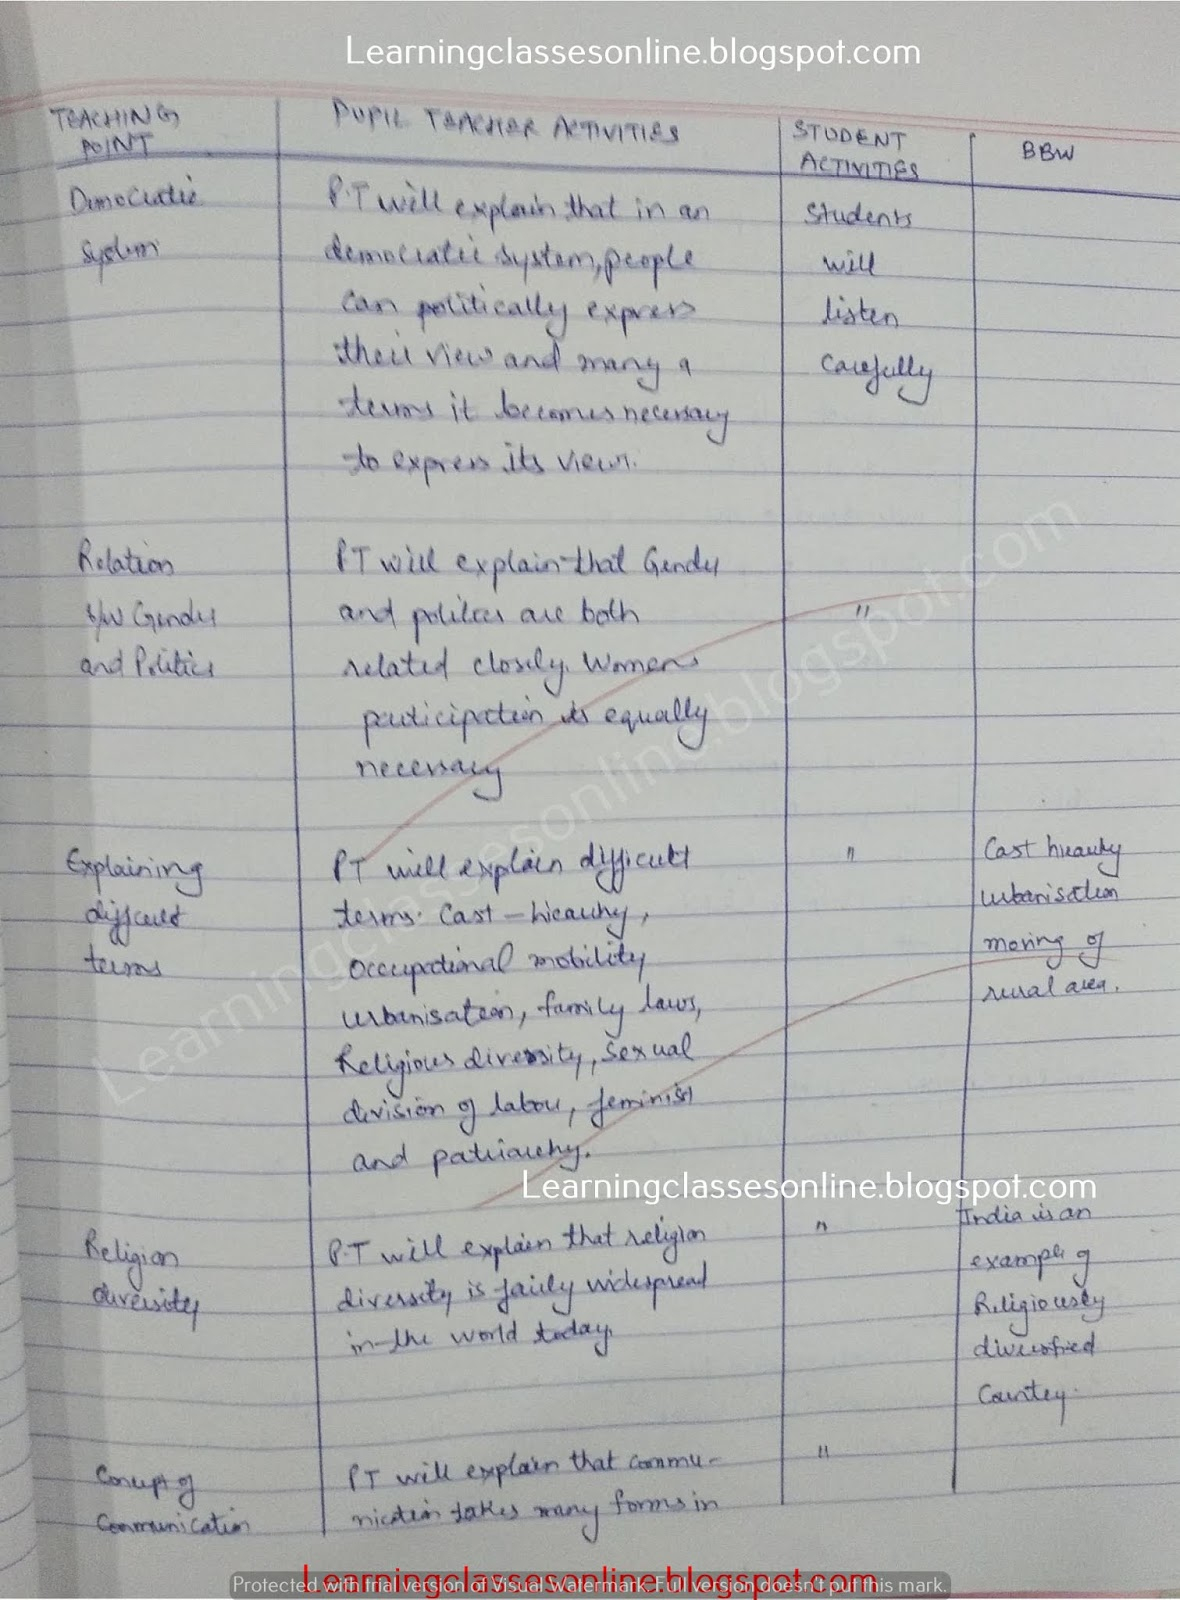 Learningclassesonline.blogspot.com
TEACHING POINT
PUPIL TEACHER ACTIVITIES
STUDENT ACTIVITIES
BBW
Democratic
system
P.T will explain that in an
democratic system, people
can politically express
their view and many a
terms it becomes necessary
to express its views.
Students
will
listen
carefully
Relation
b/w Gender
and Politics
PT will explain that Gender
and politics are both
related closely. Womens
participation is equally
necessary
"
Explaining
difficult
terms
PT will explain difficult
terms. Cast-hieachy,
occupational mobility
urbanisation, family laws,
Religious diversity, sexual
division of labou, feminist
and patriarchy.
"
Cast hieachy
urbanisation
moving of
rural area.
Learningclassesonline.blogspot.com
Learningclassesonline.blogspot.com
Religion
diversity
P.T will explain that religion
diversity is faily widespread
in the world today.
"
India is an
example of
Religiously
diversified
Country.
Concept of
Communication
PT will explain that commu-
nication takes many forms in
"
Learningclassesonline.blogspot.com
Protected with trial version of Visual Watermark. Full version doesn't put this mark.